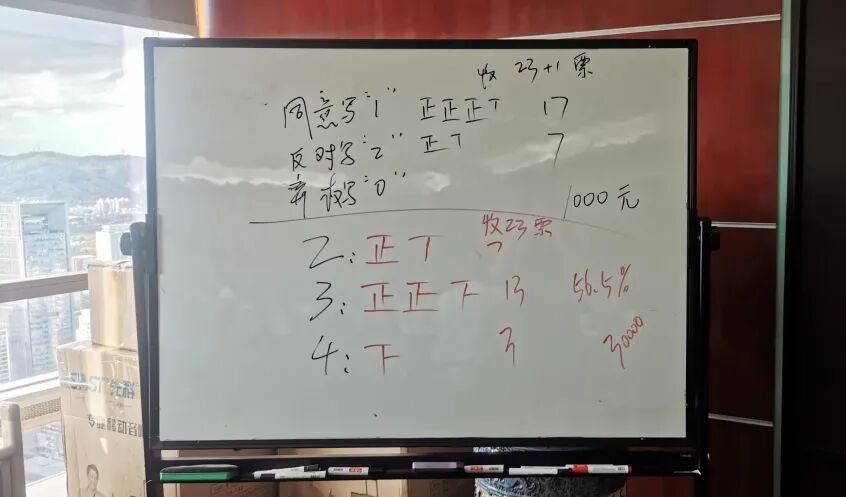 收 23+1 票
同意写"1" 正正正丅 17
反对写"2" 正丅 7
弃权写"0"
1000元
收23票
2: 正丅 7
3: 正正下 13 56.5%
4: 下 3 30000